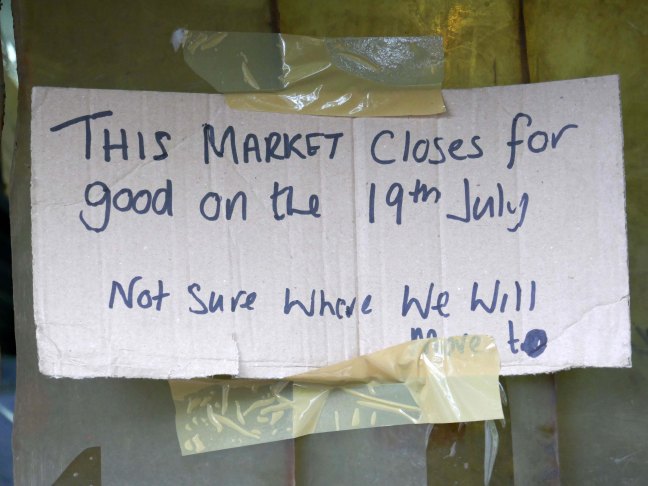 THIS MARKET Closes for
good on the 19th July
Not Sure Where We Will
Move to